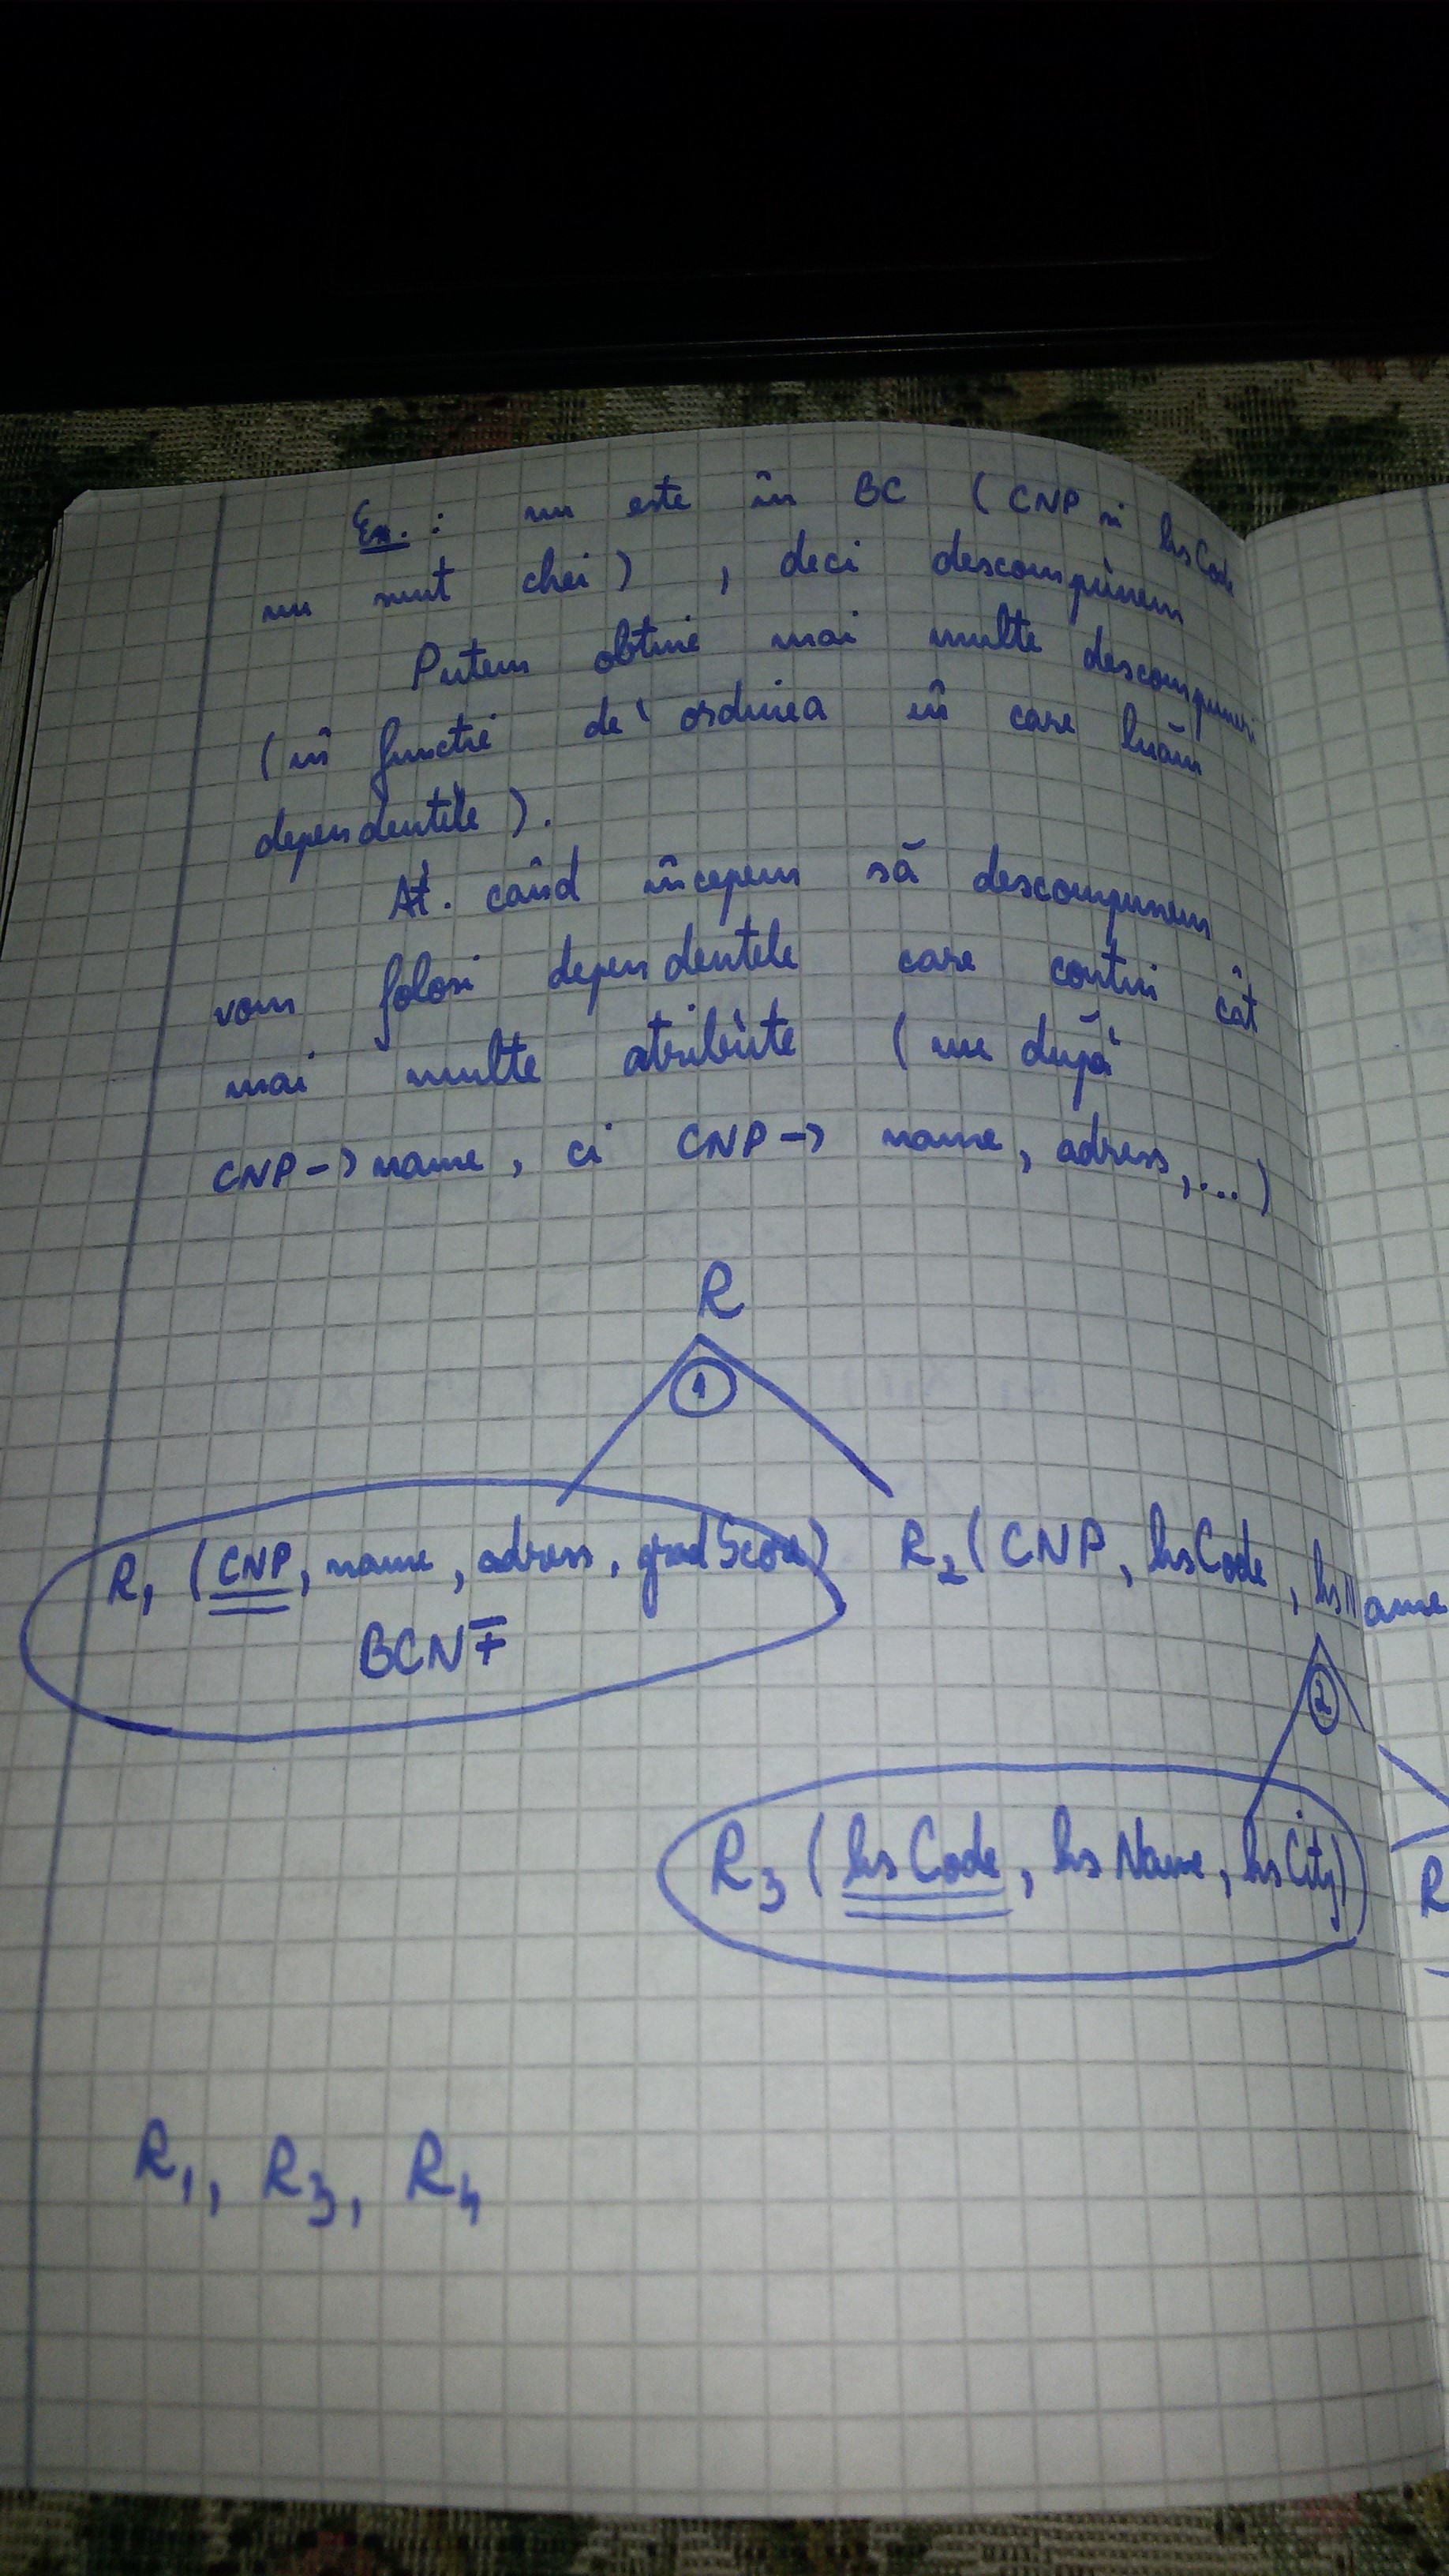 Ex. : nu este în BC ( CNP si hsCode
nu sunt chei ) , deci descompunem
Putem obtine mai multe descompuneri
( în functie de ordinea în care luăm
dependentele ) .
At. când începem să descompunem
vom folosi dependentele care contin cât
mai multe atribute ( nu după
CNP -> name , ci CNP -> name , adress , ... )
R
1
R1 ( CNP , name , adress , gradScore )
BCNF
R2 ( CNP , hsCode , hsName
2
R3 ( hsCode , hsName , hsCity )
R
R1 , R3 , R4